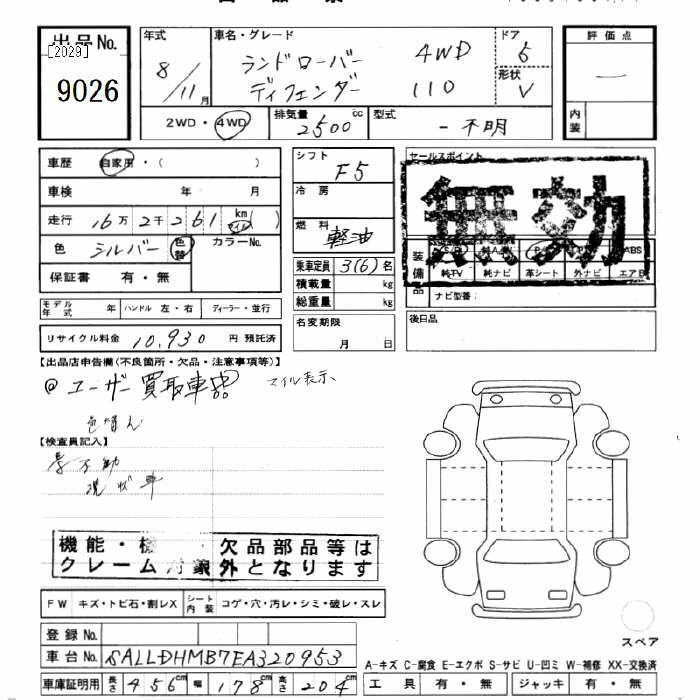 出品No.
[2029]
9026
年式
8/11月
車名・グレード
ランドローバー 4WD
ディフェンダー 110
ドア
5
形状
V
評価点
—
内装
2WD・4WD
排気量
2500cc
型式
-不明
車歴 自家用・( )
車検 年 月
走行 16万2千261 km マイル( )
色 シルバー 色替 カラーNo.
保証書 有・無
シフト F5
冷房
燃料 軽油
乗車定員 3(6)名
積載量 kg
総重量 kg
セールスポイント
無効
装備品
純TV 純ナビ 革シート 外ナビ エアB
ABS
ナビ型番:
モデル年式 年 ハンドル 左・右 ディーラー・並行
名変期限
月 日
後日品
リサイクル料金 10,930 円 預託済
【出品店申告欄(不良箇所・欠品・注意事項等)】
@ユーザー買取車 マイル表示、
色替え
【検査員記入】
現状車
機能・機 欠品部品等は
クレーム対象外となります
FW キズ・トビ石・割レX シート内装 コゲ・穴・汚レ・シミ・破レ・スレ
登録No.
車台No. SALLDHMB7EA320953
車庫証明用 長さ 456cm 幅 178cm 高さ 204cm
スペア
A-キズ C-腐食 E-エクボ S-サビ U-凹ミ W-補修 XX-交換済
工具 有・無 ジャッキ 有・無